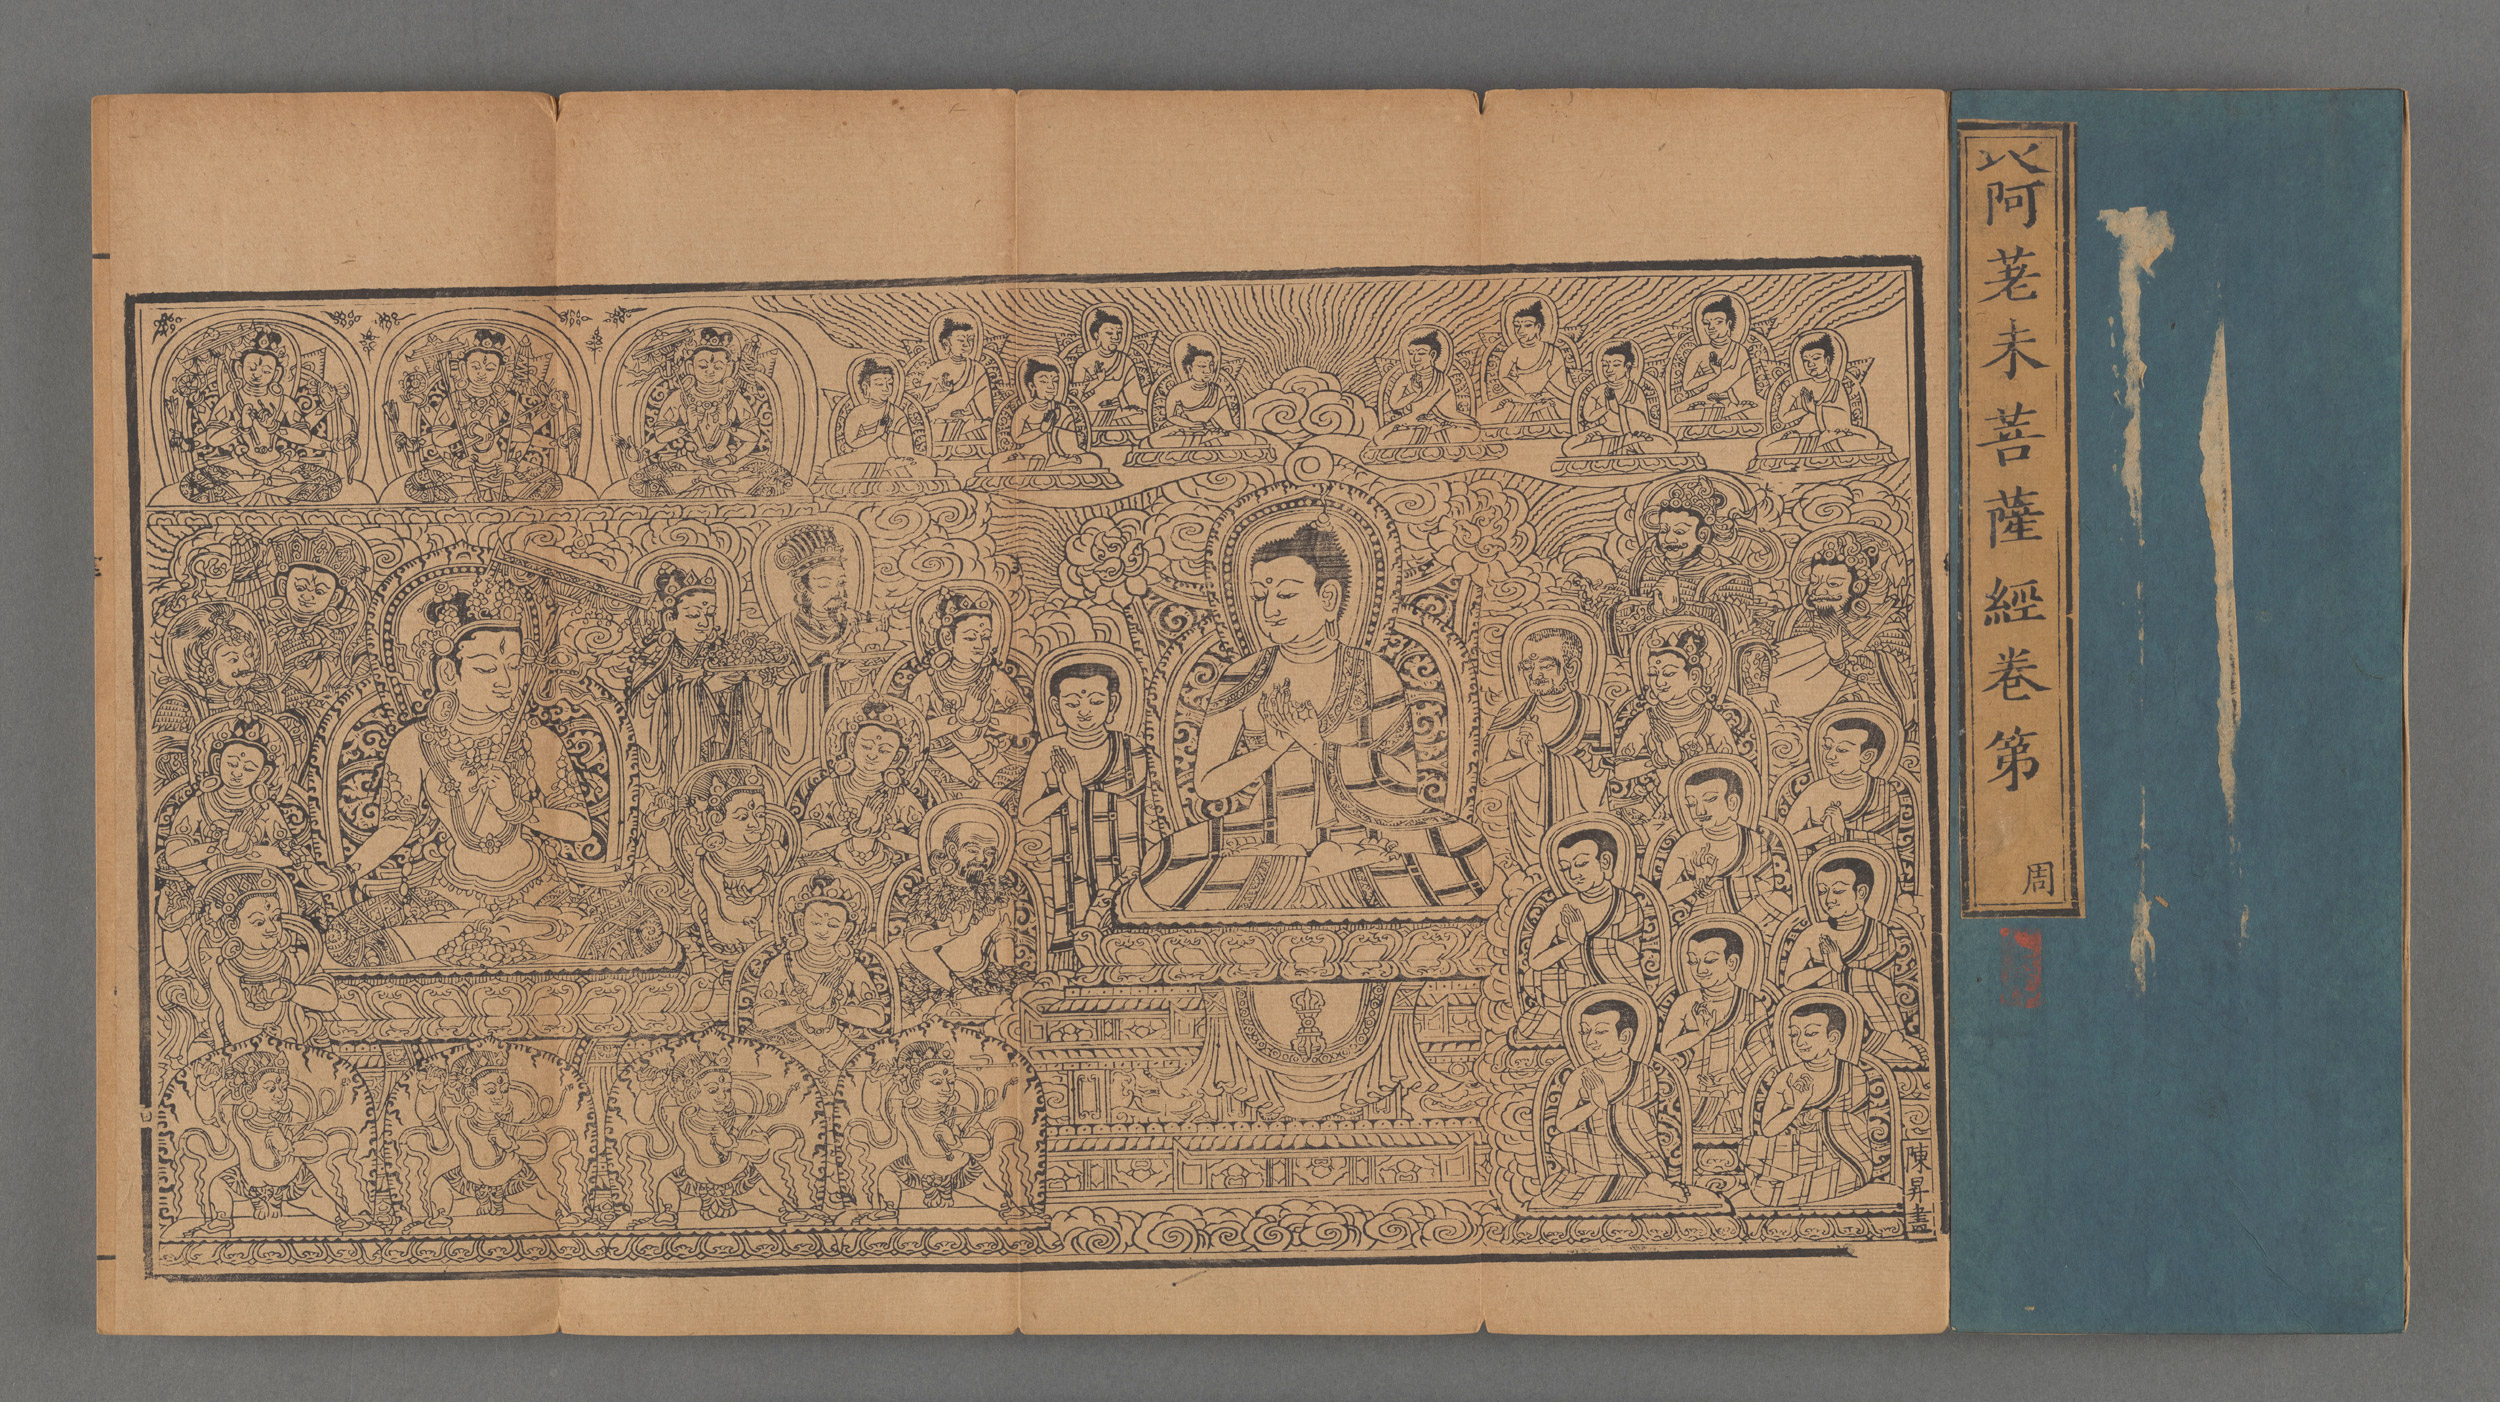 阿差末菩薩經卷第
周
陳昇畫